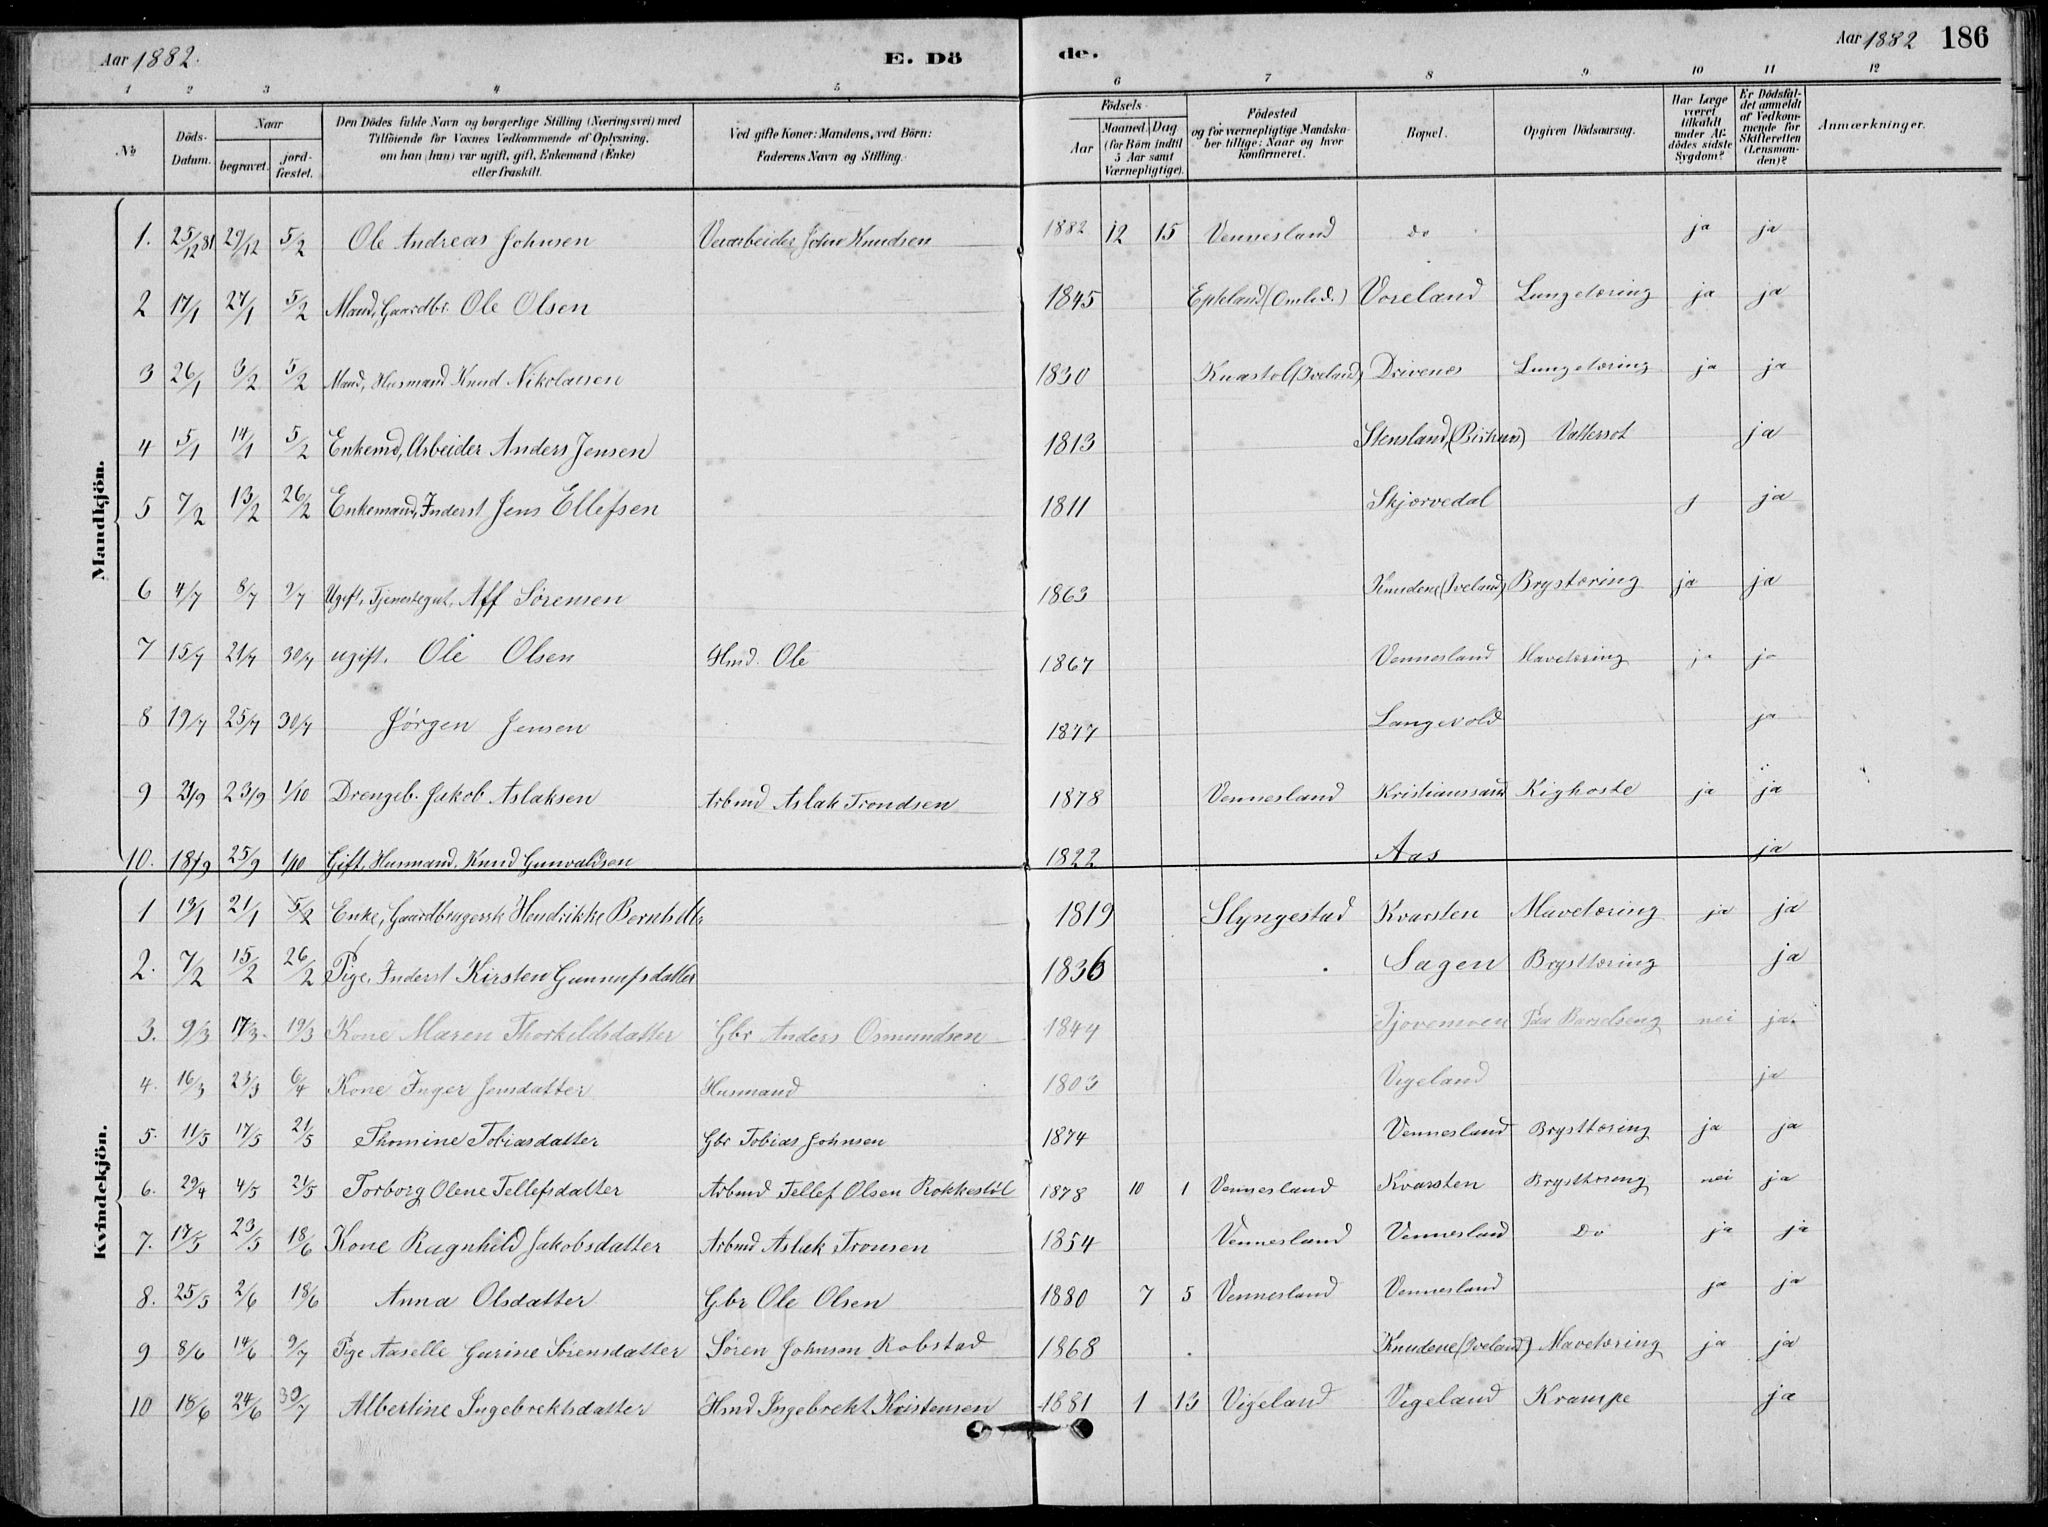 Aar 1882. E. Dö de. Aar 1882 186
1 2 3 4 5 6 7 8 9 10 11 12
No Döds-Datum. Naar begravet. jord-fæstet. Den Dödes fulde Navn og borgerlige Stilling (Næringsvei) med Tilföiende for Voxnes Vedkommende af Oplysning, om han (hun) var ugift, gift, Enkemand (Enke) eller fraskilt. Ved gifte Koner: Mandens, ved Börn: Faderens Navn og Stilling. Födsels- Aar Maaned Dag (for Börn indtil 5 Aar samt Værnepligtige). Födested og for værnepligtige Mandskaber tillige: Naar og hvor konfirmeret. Bopæl. Opgiven Dödsaarsag. Har Læge været tilkaldt under Afdödes sidste Sygdom? Er Dödsfaldet anmeldt af Vedkommende for Skifteretten (Lensmanden)? Anmærkninger.
Mandkjön.
1. 25/12 81 29/12 5/2 Ole Andreas Johnsen John Knudsen 1882 12 15 Vennesland do ja ja
2 17/1 27/1 5/2 Mand, Gaardbr. Ole Olsen 1845 Voreland Lungetæring ja ja
3 26/1 3/2 5/2 Mand, Husmand Knud Nikolaisen 1830 (Iveland) Drivenes Lungetæring ja ja
4 5/1 14/1 5/2 Enkemd, Arbeider Anders Jensen 1813 Stensland, Vattersot ja
5 7/2 13/2 26/2 Enkemand, Inderst Jens Ellefsen 1811 Skjærvedal j ja
6 4/7 8/7 9/7 Ugift, Tjenestegut, Aff Sørensen 1863 Knudene (Iveland) Brysttæring ja ja
7 15/7 21/7 30/7 ugift. Ole Olsen Hmd. Ole 1867 Vennesland Mavetæring ja ja
8 19/7 25/7 30/7 Jørgen Jensen 1877 Langevold ja
9 21/9 23/9 1/10 Drengeb. Jakob Aslaksen Arbmd Aslak Trondsen 1878 Vennesland Kristianssand Kighoste ja ja
10. 18/9 25/9 1/10 Gift, Husmand, Knud Gunvaldsen 1822 Aas ja
Kvindekjön.
1 13/1 21/1 5/2 Enke, Gaardbrugersk Hendrikke Berntsdtr 1819 Slyngestad Kvarsten Mavetæring ja ja
2. 7/2 15/2 26/2 Pige, Inderst Kirsten Gunnufsdatter 1836 Sagen Brysttæring ja
3. 9/3 17/3. 19/3 Kone Maren Thorkildsdatter Gbr Anders Osmundsen 1844 Tjovemoen Paa Barselseng nei ja.
4. 16/3 23/3 6/4 Kone Inger Jensdatter Husmand 1803 Vigeland ja
5. 11/5 17/5 21/5 Thomine Tobiasdatter Gbr Tobias Johnsen 1874 Vennesland Brysttæring ja ja
6. 29/4 4/5 21/5 Torborg Olene Tellefsdatter Arbmd Tellef Olsen Rokkestøl 1878 10 1 Vennesland Kvarsten Brysttæring nei ja
7. 17/5 23/5 18/6 Kone Ragnhild Jakobsdatter Arbmd Aslak Tronsen 1854 Vennesland Vennesland Do ja ja
8. 25/5 2/6 18/6 Anna Olsdatter Gbr Ole Olsen 1880 7 5 Vennesland Vennesland ja ja
9 8/6 14/6 9/7 Pige Aaselle Gurine Sørensdatter Søren Johnson Robstad 1868 Knudene (Iveland) Mavetæring ja ja
10 18/6 24/6 30/7 Albertine Ingebrektsdatter Hmd Ingebrekt Kristensen 1881 1 13 Vigeland Vigeland Krampe ja